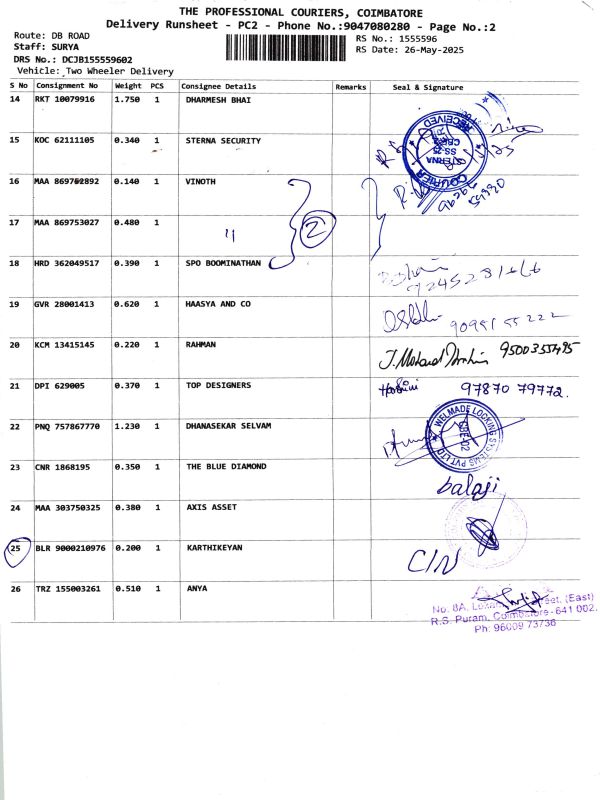 THE PROFESSIONAL COURIERS, COIMBATORE
Delivery Runsheet - PC2 - Phone No.:9047080280 - Page No.:2
Route: DB ROAD
RS No.: 1555596
Staff: SURYA
RS Date: 26-May-2025
DRS No.: DCJB155559602
Vehicle: Two Wheeler Delivery
S No Consignment No Weight PCS Consignee Details Remarks Seal & Signature
14 RKT 10079916 1.750 1 DHARMESH BHAI
RECEIVED
15 KOC 62111105 0.340 1 STERNA SECURITY
STERNA
SS-25
COURIER
16 MAA 869762892 0.140 1 VINOTH
17 MAA 869753027 0.480 1 4 2
18 HRD 362049517 0.390 1 SPO BOOMINATHAN
19 GVR 28001413 0.620 1 HAASYA AND CO
20 KCM 13415145 0.220 1 RAHMAN
21 DPI 629005 0.370 1 TOP DESIGNERS 97870 79772.
22 PNQ 757867770 1.230 1 DHANASEKAR SELVAM
WELMADE LOCKING SYSTEMS PVT LTD
CBE-02
23 CNR 1868195 0.350 1 THE BLUE DIAMOND balaji
24 MAA 303750325 0.380 1 AXIS ASSET
25 BLR 9000210976 0.200 1 KARTHIKEYAN C/N
26 TRZ 155003261 0.510 1 ANYA
No. 8A, (East)
R.S. Puram, Coimbatore - 641 002.
Ph: 96009 73736